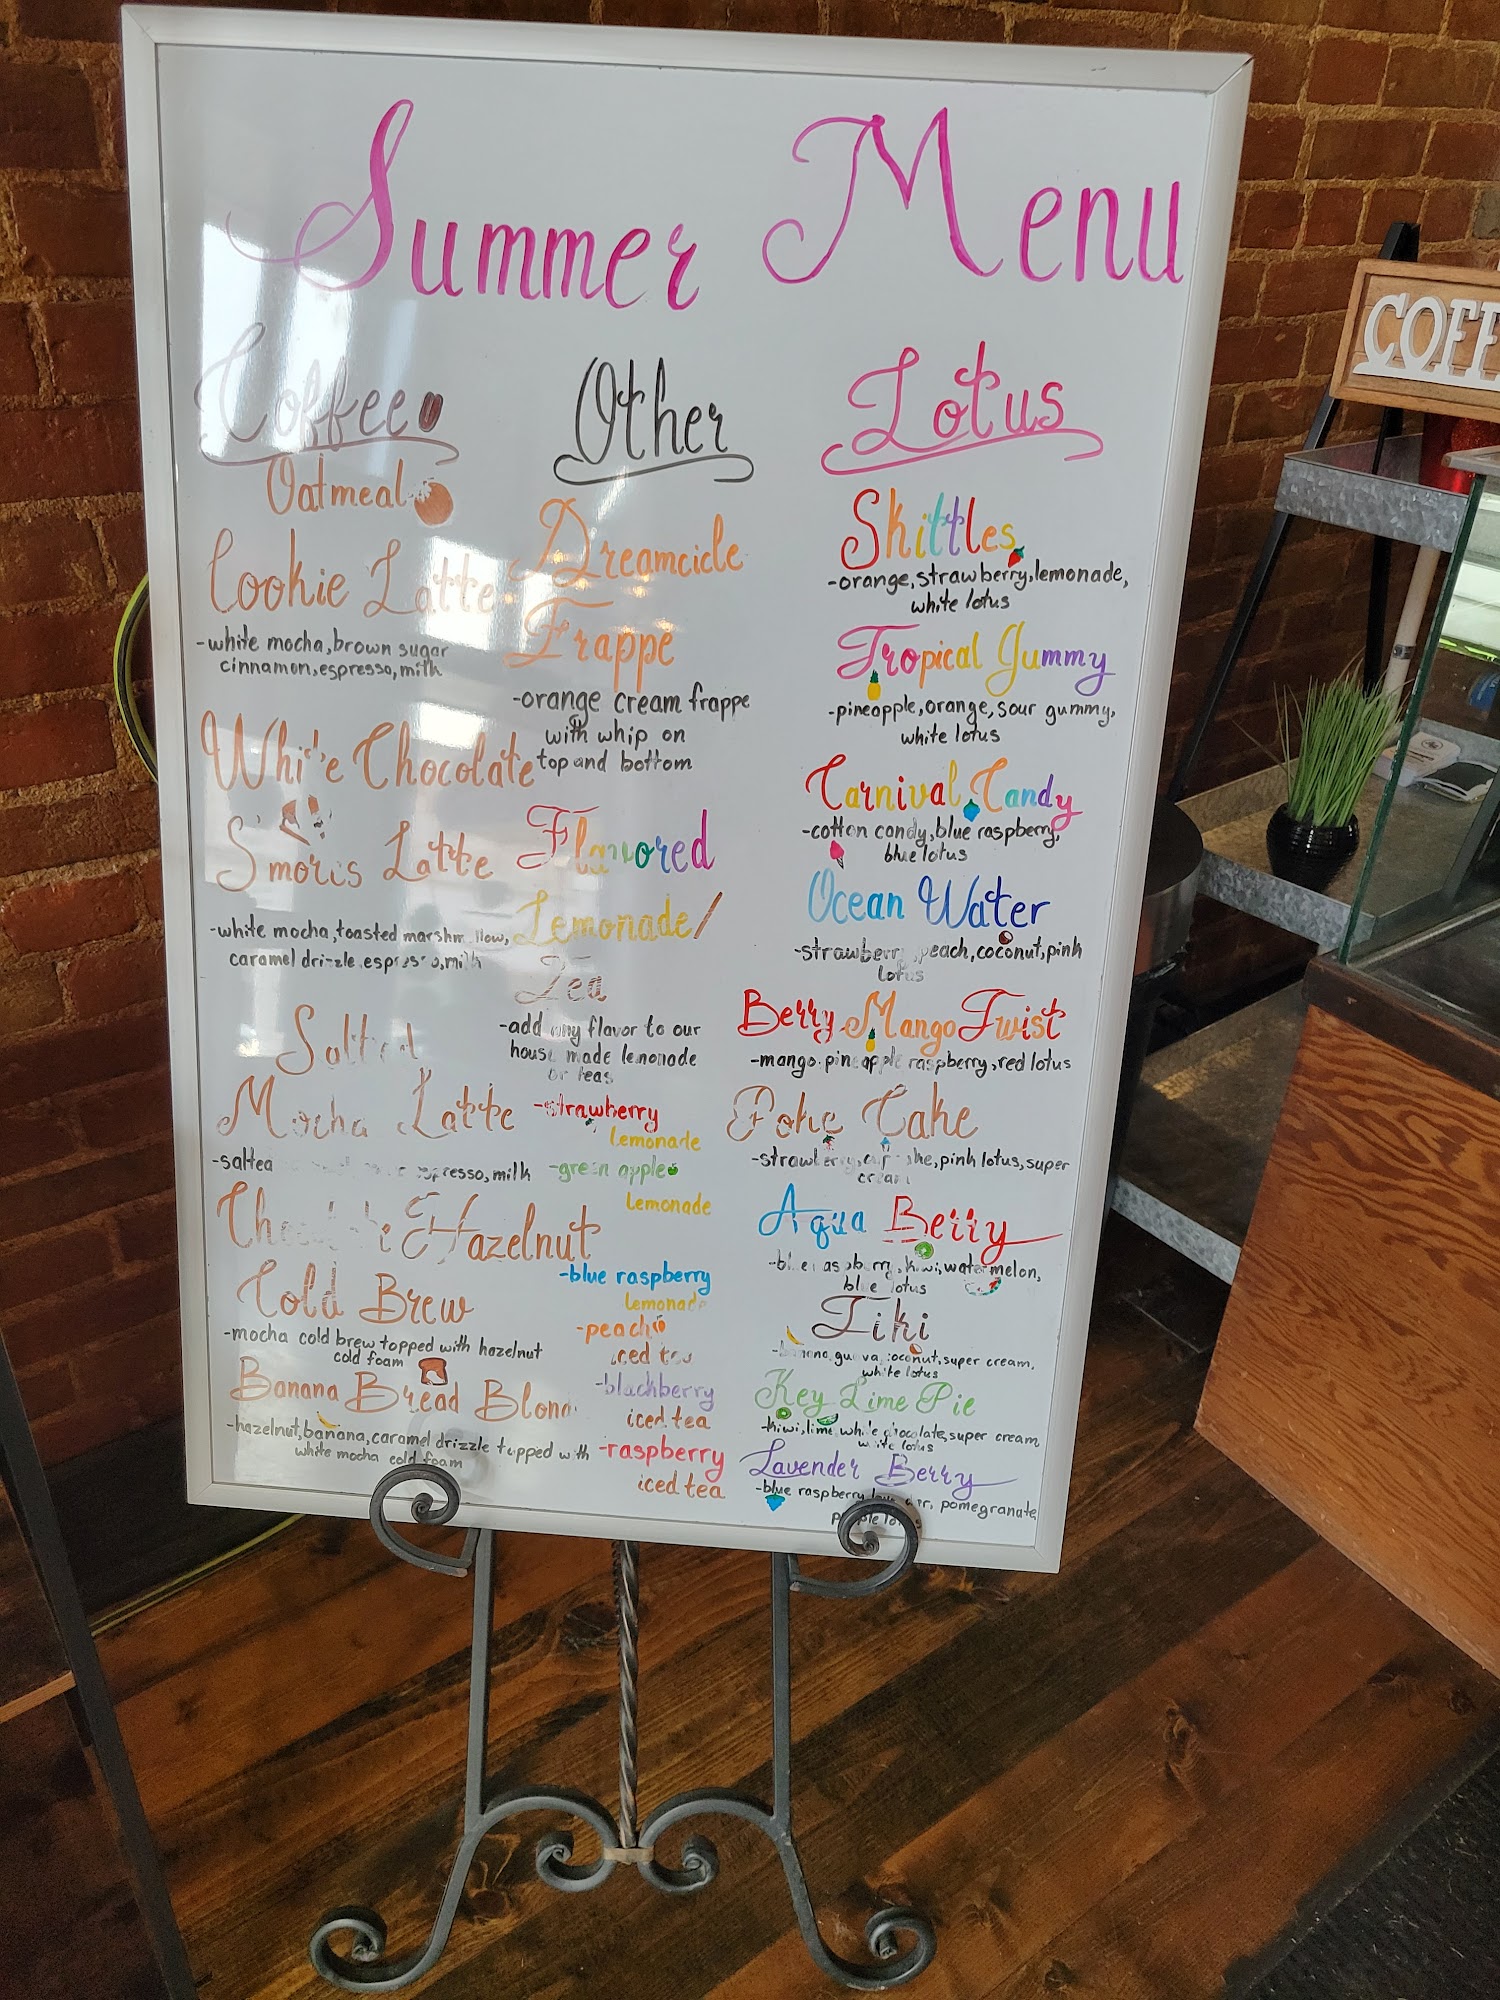 Summer Menu
Coffee
Oatmeal
Cookie Latte
-white mocha, brown sugar
cinnamon, espresso, milk
White Chocolate
S'mores Latte
-white mocha, toasted marshmallow,
caramel drizzle, espresso, milk
Salted
Mocha Latte
-salted espresso, milk
Chocolate Hazelnut
Cold Brew
-mocha cold brew topped with hazelnut
cold foam
Banana Bread Blond
-hazelnut, banana, caramel drizzle topped with
white mocha cold foam
Other
Dreamcicle
Frappe
-orange cream frappe
with whip on
top and bottom
Flavored
Lemonade/
Tea
-add any flavor to our
house made lemonade
or teas
-strawberry
lemonade
-green apple
lemonade
-blue raspberry
lemonade
-peach
iced tea
-blackberry
iced tea
-raspberry
iced tea
Lotus
Skittles
-orange, strawberry, lemonade,
white lotus
Tropical Gummy
-pineapple, orange, sour gummy,
white lotus
Carnival Candy
-cotton candy, blue raspberry,
blue lotus
Ocean Water
-strawberry, peach, coconut, pink
lotus
Berry Mango Twist
-mango, pineapple, raspberry, red lotus
Poke Cake
-strawberry, cupcake, pink lotus, super
cream
Aqua Berry
-blue raspberry, kiwi, watermelon,
blue lotus
Tiki
-banana, guava, coconut, super cream,
white lotus
Key Lime Pie
-kiwi, lime, white chocolate, super cream
white lotus
Lavender Berry
-blue raspberry, lavender, pomegranate,
purple lotus
COFF